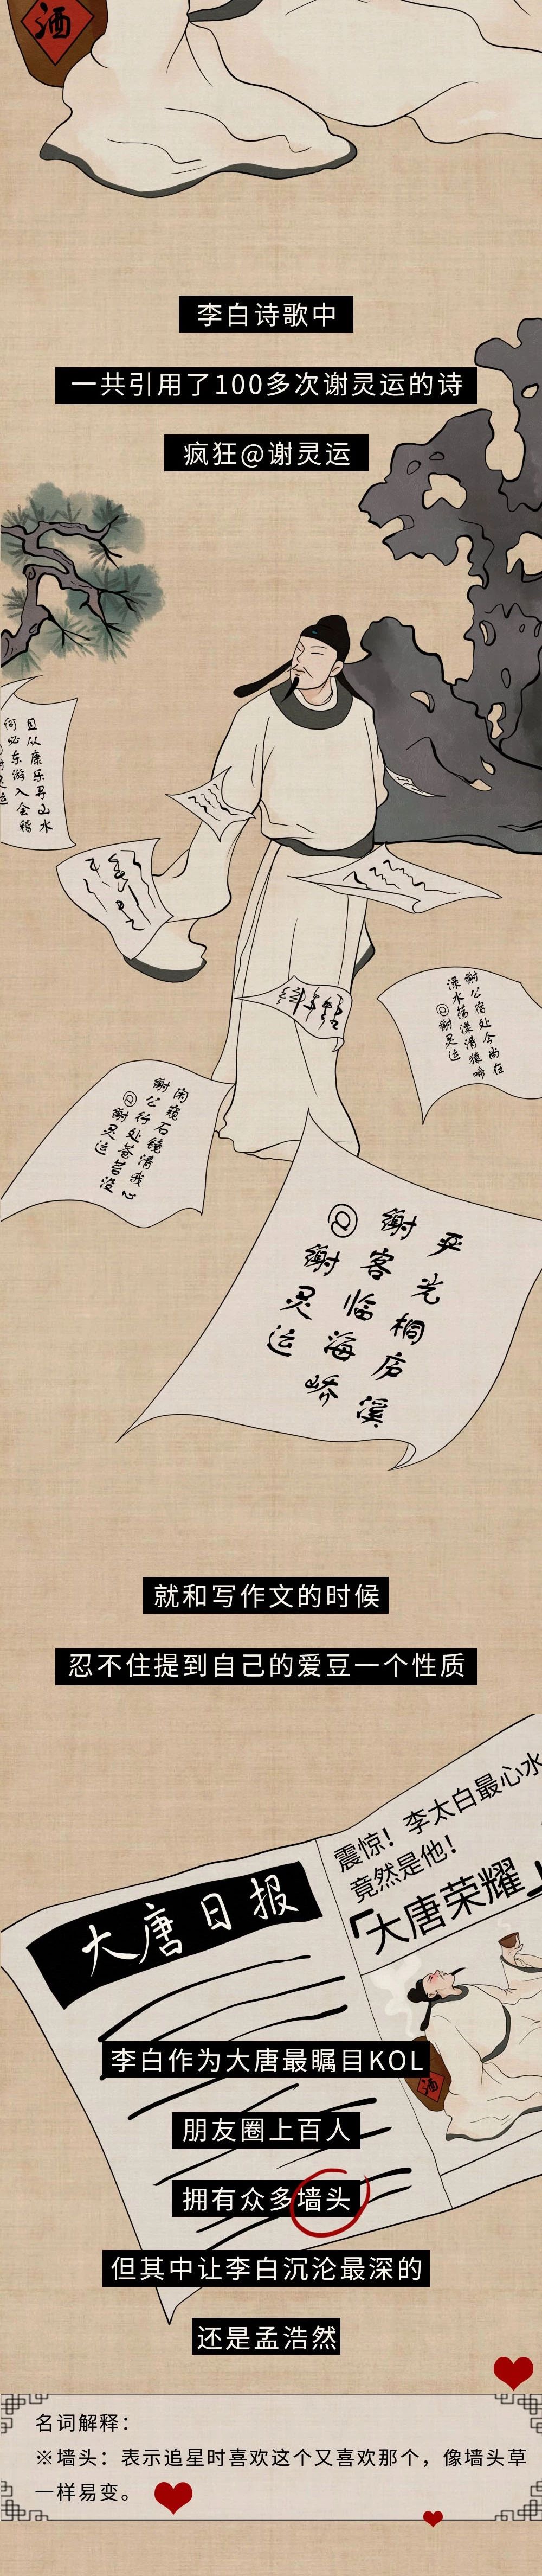 酒
李白诗歌中
一共引用了100多次谢灵运的诗
疯狂@谢灵运
且从康乐寻山水
何必东游入会稽
谢公宿处今尚在
渌水荡漾清猿啼
@谢灵运
闲窥石镜清我心
谢公行处苍苔没
@谢灵运
严光桐庐溪
谢客临海峤
@谢灵运
就和写作文的时候
忍不住提到自己的爱豆一个性质
震惊！李太白最心水
竟然是他！
「大唐荣耀」
大唐日报
酒
李白作为大唐最瞩目KOL
朋友圈上百人
拥有众多墙头
但其中让李白沉沦最深的
还是孟浩然
名词解释：
※墙头：表示追星时喜欢这个又喜欢那个，像墙头草
一样易变。